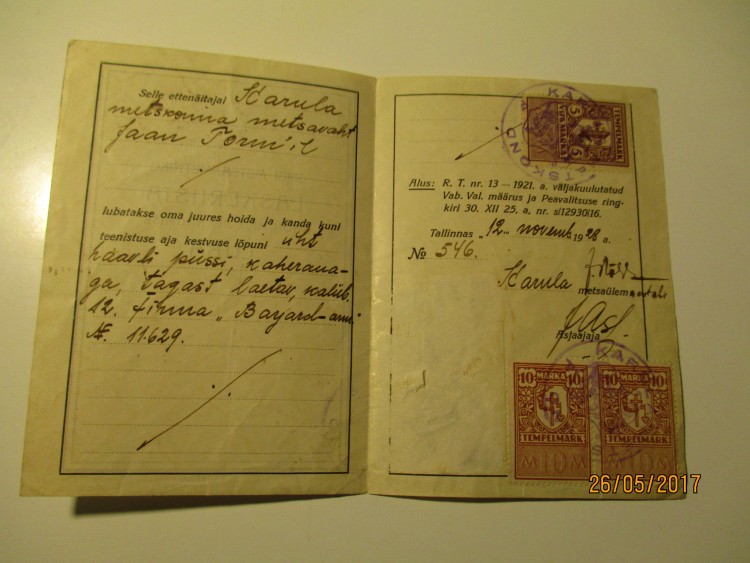 Selle ettenäitajal Karula
metskonna metsavaht
Jaan Torm'il
lubatakse oma juures hoida ja kanda kuni
teenistuse aja kestvuse lõpuni üht
haavli püssi, kaheraua-
ga, tagast laetav, kaliib.
12. firma „Bayard-
№ 11.629.
KAR
5 5
MARKA
TEMPELMARK
Alus: R. T. nr. 13 — 1921. a. väljakuulutatud
Vab. Val. määrus ja Peavalitsuse ring-
kiri 30. XII 25, a, nr. sl12930|16.
Tallinnas „12" novemb. 1928 a.
№ 546.
Karula
metsaülem
Asjaajaja
10 MARKA 10
TEMPELMARK
10
10 MARKA 10
TEMPELMARK
10
26/05/2017